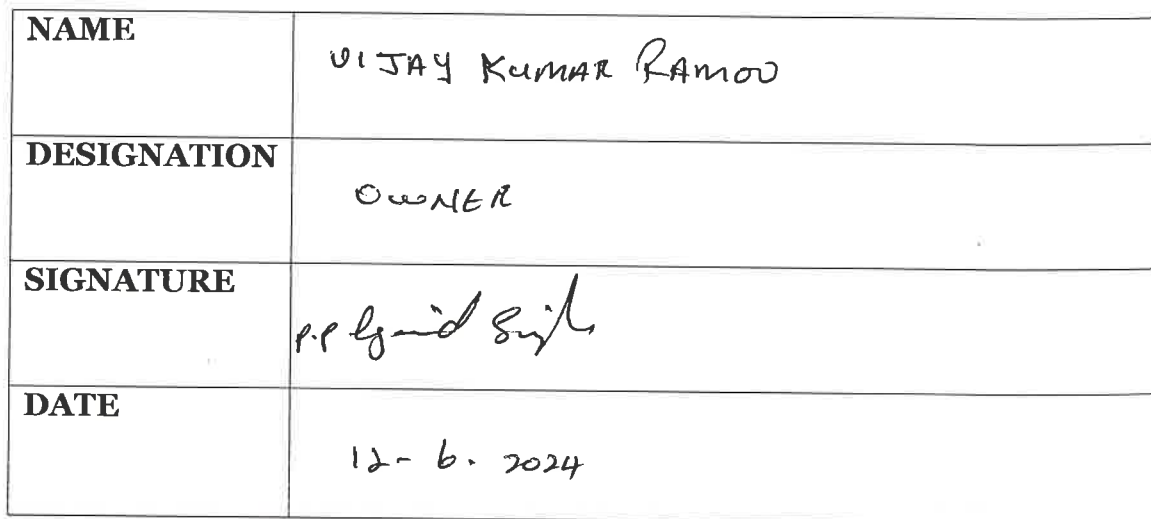 NAME
VIJAY KUMAR RAMOO
DESIGNATION
OWNER
SIGNATURE
P.P Singh
DATE
12-6.2024